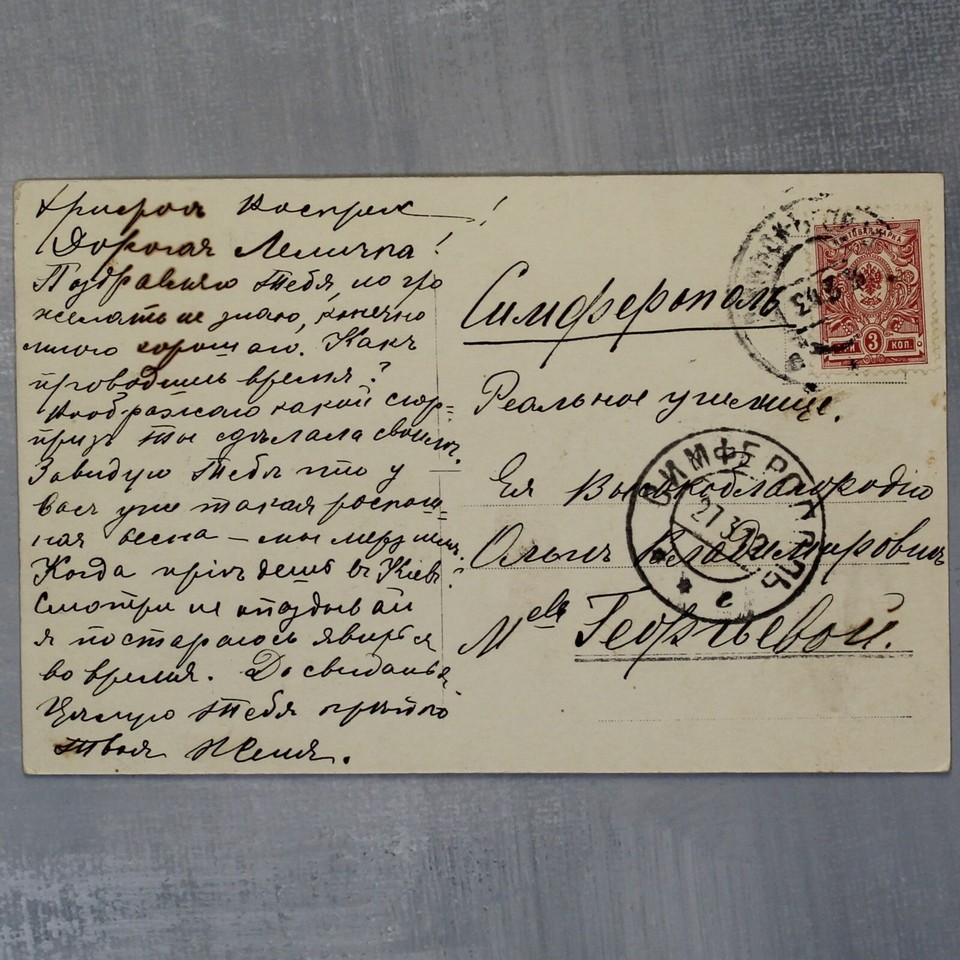 Христос Воскрес!
Дорогая Леличка!
Поздравляю Тебя, но чго
желать не знаю, конечно
много хорошаго. Какъ
проводишь время?
Воображаю какой сюр=
призъ ты сдѣлала своимъ.
Завидую Тебѣ что у
васъ уже такая роскош=
ная весна — мы мерзнемъ.
Когда пріѣдешь въ Кіевъ?
Смотри не опоздывай
я постараюсь явиться
во время. До свиданья
Цѣлую Тебя крѣпко
Твоя Женя.
Симферополь
Реальное училище.
Ея Высокоблагородію
Ольгѣ Владимировнѣ
М-elle Георгьевой.
ПОЧТОВАЯ МАРКА
3
КОП.
СИМФЕРОПОЛЬ
27 3
г